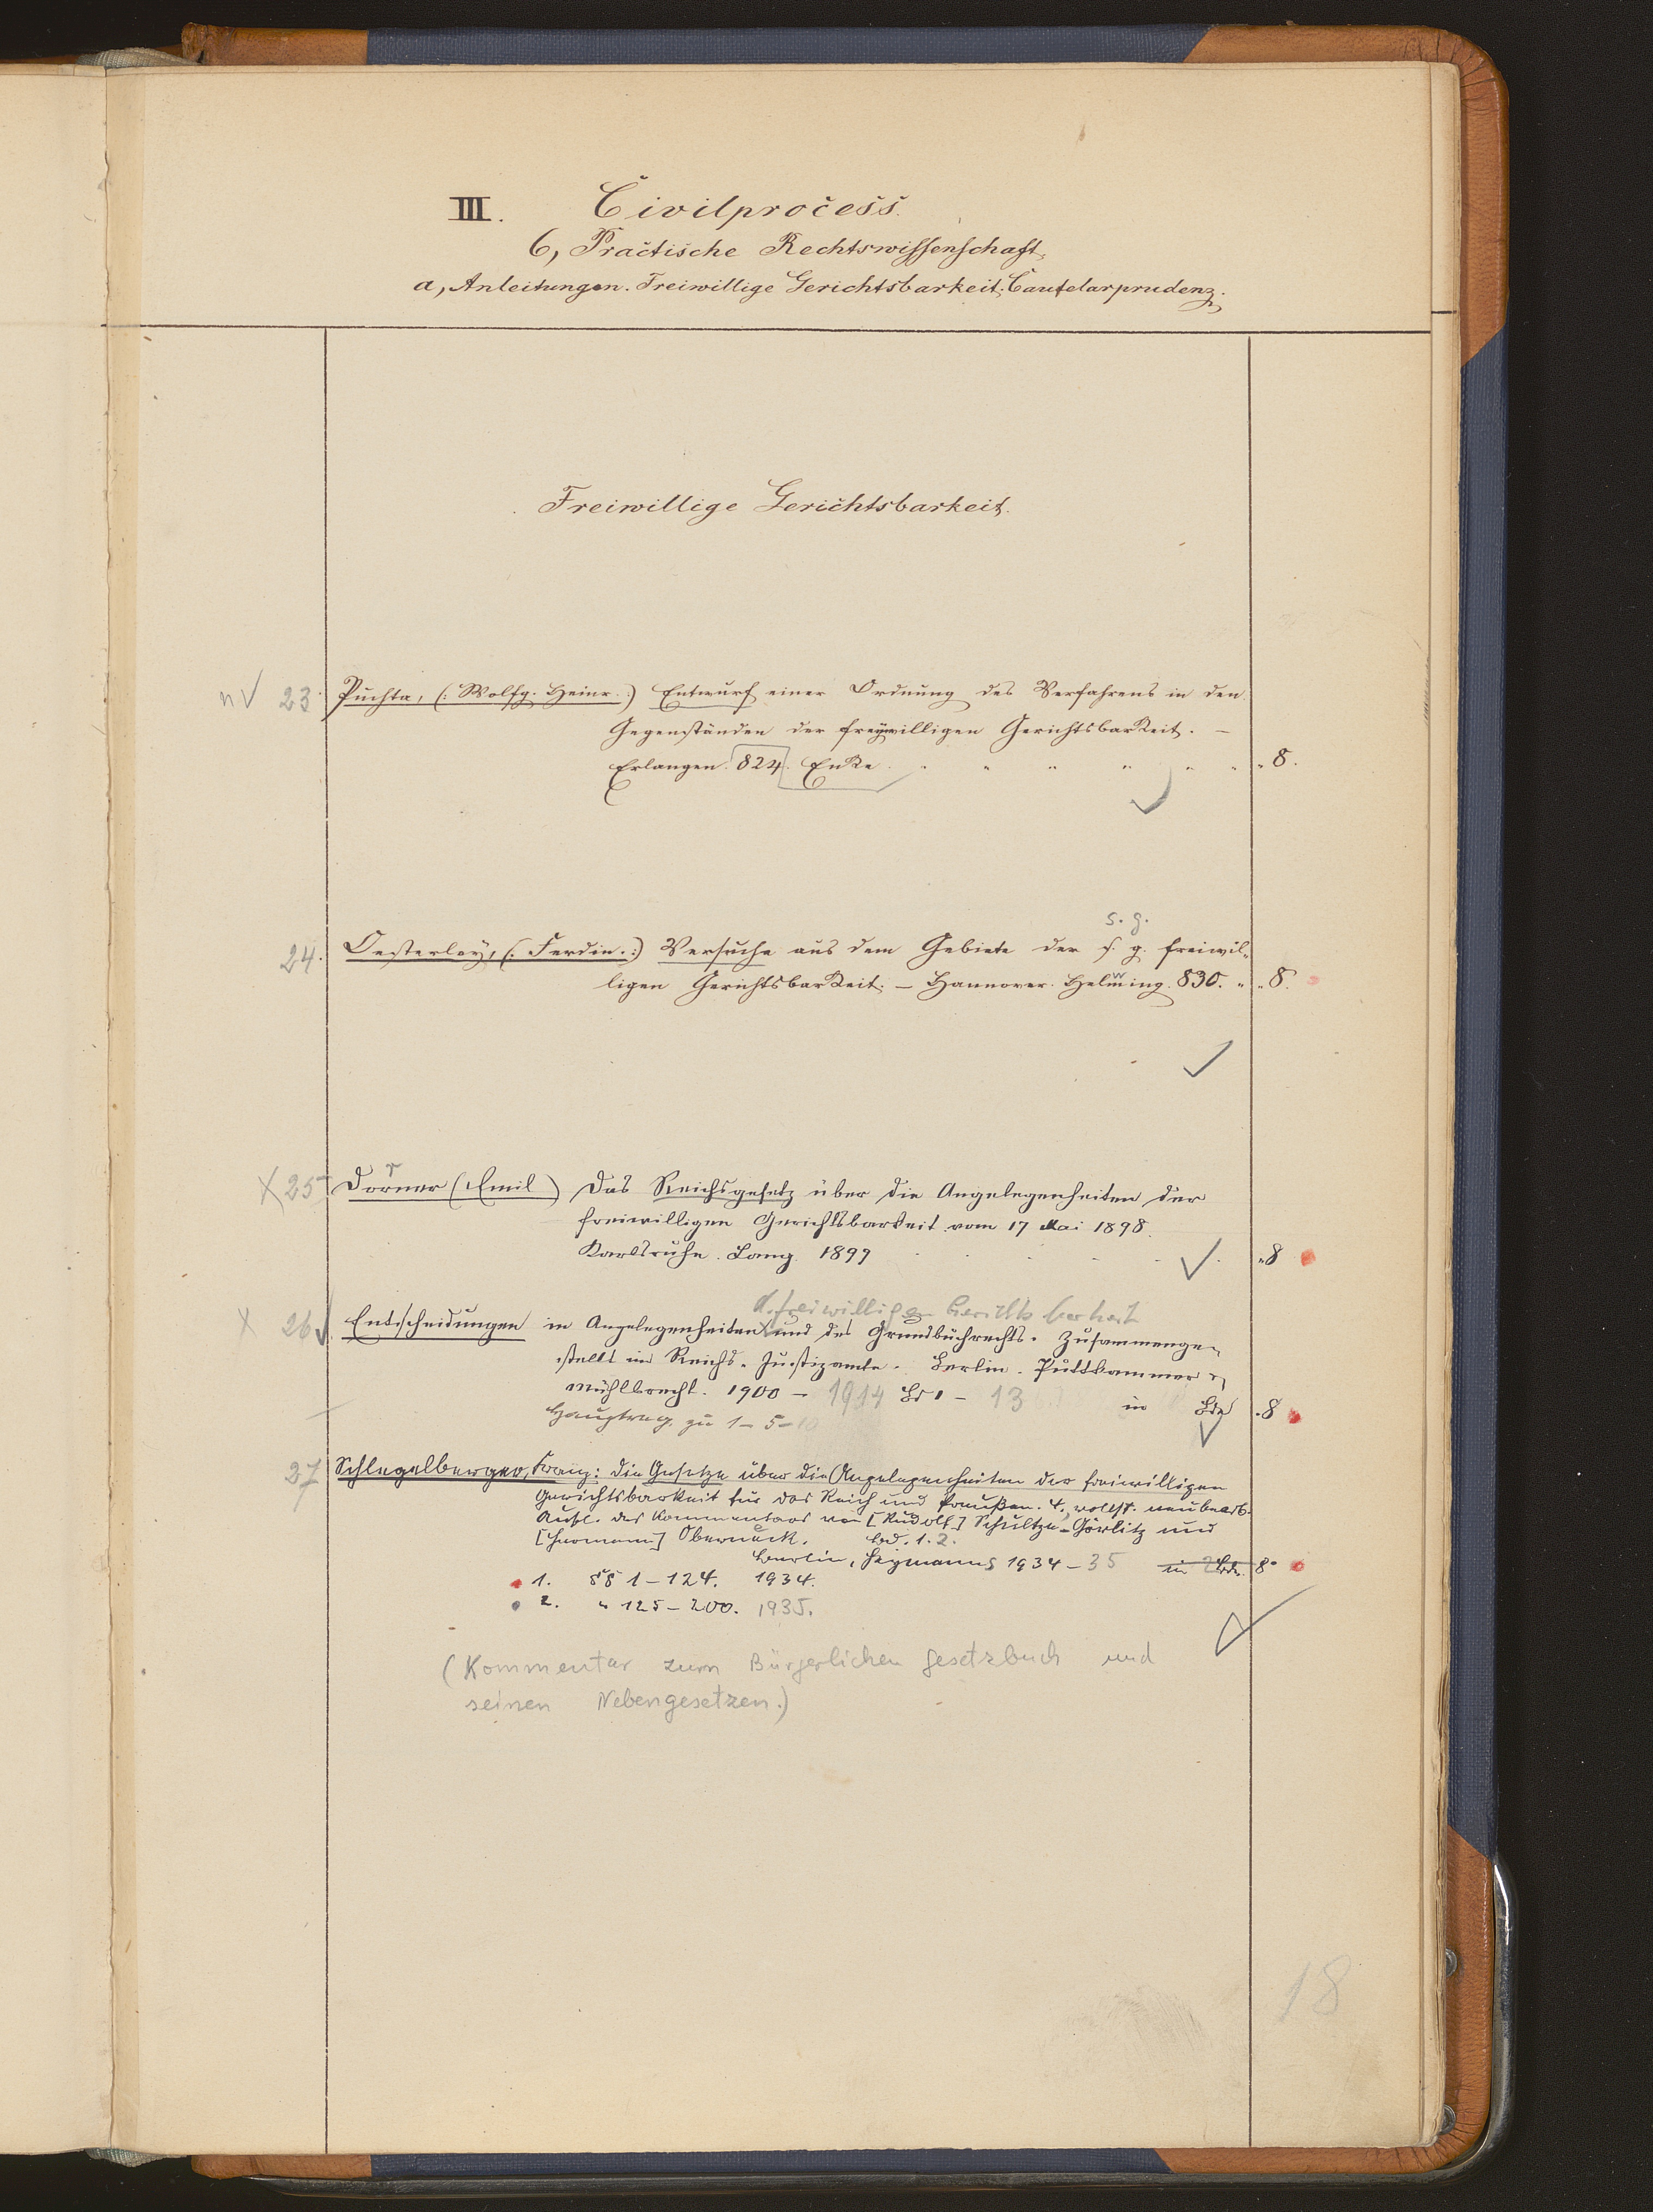 III. Civilprocess.
6, Practische Rechtswissenschaft,
a, Anleitungen. Freiwillige Gerichtsbarkeit. Cautelarprudenz.
Freiwillige Gerichtsbarkeit.
n √ 23. Puchta, (: Wolfg. Heinr. :) Entwurf einer Ordnung des Verfahrens in den
Gegenständen der freywilligen Gerichtsbarkeit. —
Erlangen. 824. Enke. " " " " " " " 8.
s. g.
24. Oesterley, (: Ferdin. :) Versuche aus dem Gebiete der s. g. freiwil-
ligen Gerichtsbarkeit. — Hannover. Helwing. 830. " " 8.
X 25 Dorner (Emil) Das Reichsgesetz über die Angelegenheiten der
freiwilligen Gerichtsbarkeit vom 17 Mai 1898.
Karlsruhe. Lang. 1899 "8
d. freiwilligen Gerichtsbarkeit
X 26 √ Entscheidungen in Angelegenheiten und des Grundbuchrechts. Zusammenge-
stellt im Reichs-Justizamte. Berlin. Puttkammer &
Mühlbrecht. 1900 – 1914 Bd 1 – 13 in Bde "8
Hauptreg. zu 1–5–10
27 Schlegelberger, Franz: Die Gesetze über die Angelegenheiten der freiwilligen
Gerichtsbarkeit für das Reich und Preußen. 4, vollst. neubearb.
Aufl. des Kommentars von [Rudolf] Schultze-Görlitz und
[Hermann] Oberneck. Bd. 1. 2.
Berlin, Heymanns 1934 – 35 in 2 Bdn. 8°
1. §§ 1–124. 1934.
2. " 125–200. 1935.
(Kommentar zum Bürgerlichen Gesetzbuch und
seinen Nebengesetzen.)
18